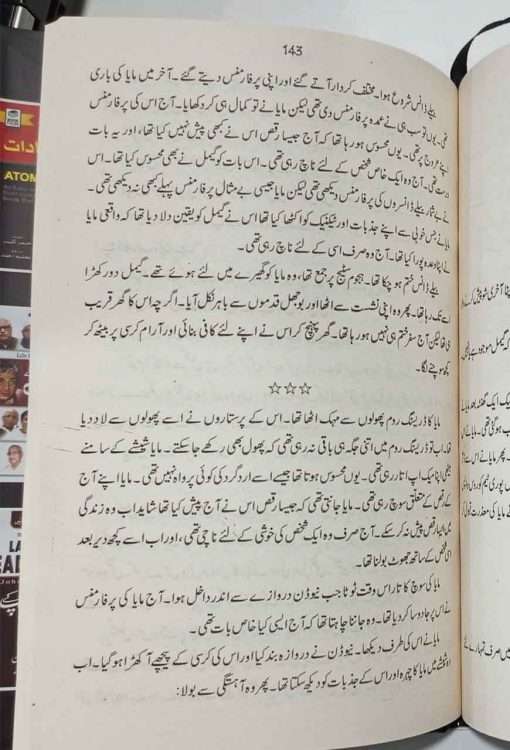 143
بیلے ڈانس شروع ہوا۔ مختلف کردار آتے گئے اور اپنی پرفارمنس دیتے گئے۔ آخر میں مایا کی باری
تھی۔ یوں تو سب ہی نے عمدہ پرفارمنس دی تھی لیکن مایا نے تو کمال ہی کر دکھایا۔ آج اس کی پرفارمنس
اپنے عروج پر تھی۔ یوں محسوس ہو رہا تھا کہ آج جیسا رقص اس نے کبھی پیش نہیں کیا تھا، اور یہ بات
درست تھی۔ آج وہ ایک خاص شخص کے لئے ناچ رہی تھی۔ اس بات کو گیمل نے بھی محسوس کیا تھا۔ اس
نے بے شمار بیلے ڈانسروں کی پرفارمنس دیکھی تھی لیکن مایا جیسی بے مثال پرفارمنس پہلے کبھی نہ دیکھی تھی۔
مایا نے جس خوبی سے اپنے جذبات اور ٹیکنیک کو اکٹھا کیا تھا اس نے گیمل کو یقین دلا دیا تھا کہ واقعی مایا
نے اپنا وعدہ پورا کیا تھا۔ آج وہ صرف اسی کے لئے ناچ رہی تھی۔
بیلے ڈانس ختم ہو چکا تھا۔ ہجوم سٹیج پر جمع تھا، وہ مایا کو گھیرے میں لئے ہوئے تھے۔ گیمل دور کھڑا
اسے تک رہا تھا۔ پھر وہ اپنی نشست سے اٹھا اور بوجھل قدموں سے باہر نکل آیا۔ اگرچہ اس کا گھر قریب
ہی تھا لیکن آج سفر ختم ہی نہیں ہو رہا تھا۔ گھر پہنچ کر اس نے اپنے لئے کافی بنائی اور آرام کرسی پر بیٹھ کر
کچھ سوچنے لگا۔
☆☆☆
مایا کا ڈریسنگ روم پھولوں سے مہک اٹھا تھا۔ اس کے پرستاروں نے اسے پھولوں سے لاد دیا
تھا۔ اب تو ڈریسنگ روم میں اتنی جگہ ہی باقی نہ رہی تھی کہ پھول بھی رکھے جا سکتے۔ مایا شیشے کے سامنے
بیٹھی اپنا میک اپ اتار رہی تھی۔ یوں محسوس ہوتا تھا جیسے اسے اردگرد کی کوئی پرواہ نہیں تھی۔ مایا اپنے آج
کے رقص کے متعلق سوچ رہی تھی۔ مایا جانتی تھی کہ جیسا رقص اس نے آج پیش کیا تھا شاید اب وہ زندگی
میں ایسا رقص پیش نہ کر سکے۔ آج صرف وہ ایک شخص کی خوشی کے لئے ناچی تھی، اور اب اسے کچھ دیر بعد
اسی شخص کے ساتھ جھوٹ بولنا تھا۔
مایا کی سوچ کا تار اس وقت ٹوٹا جب نیوڈن دروازے سے اندر داخل ہوا۔ آج مایا کی پرفارمنس
نے اس پر جادو سا کر دیا تھا۔ وہ جاننا چاہتا تھا کہ آج ایسی کیا خاص بات تھی۔
مایا نے اس کی طرف دیکھا۔ نیوڈن نے دروازہ بند کیا اور اس کی کرسی کے پیچھے آ کھڑا ہو گیا۔ اب
وہ شیشے میں مایا کا چہرہ اور اس کے جذبات کو دیکھ سکتا تھا۔ پھر وہ آہستگی سے بولا:
ATOM